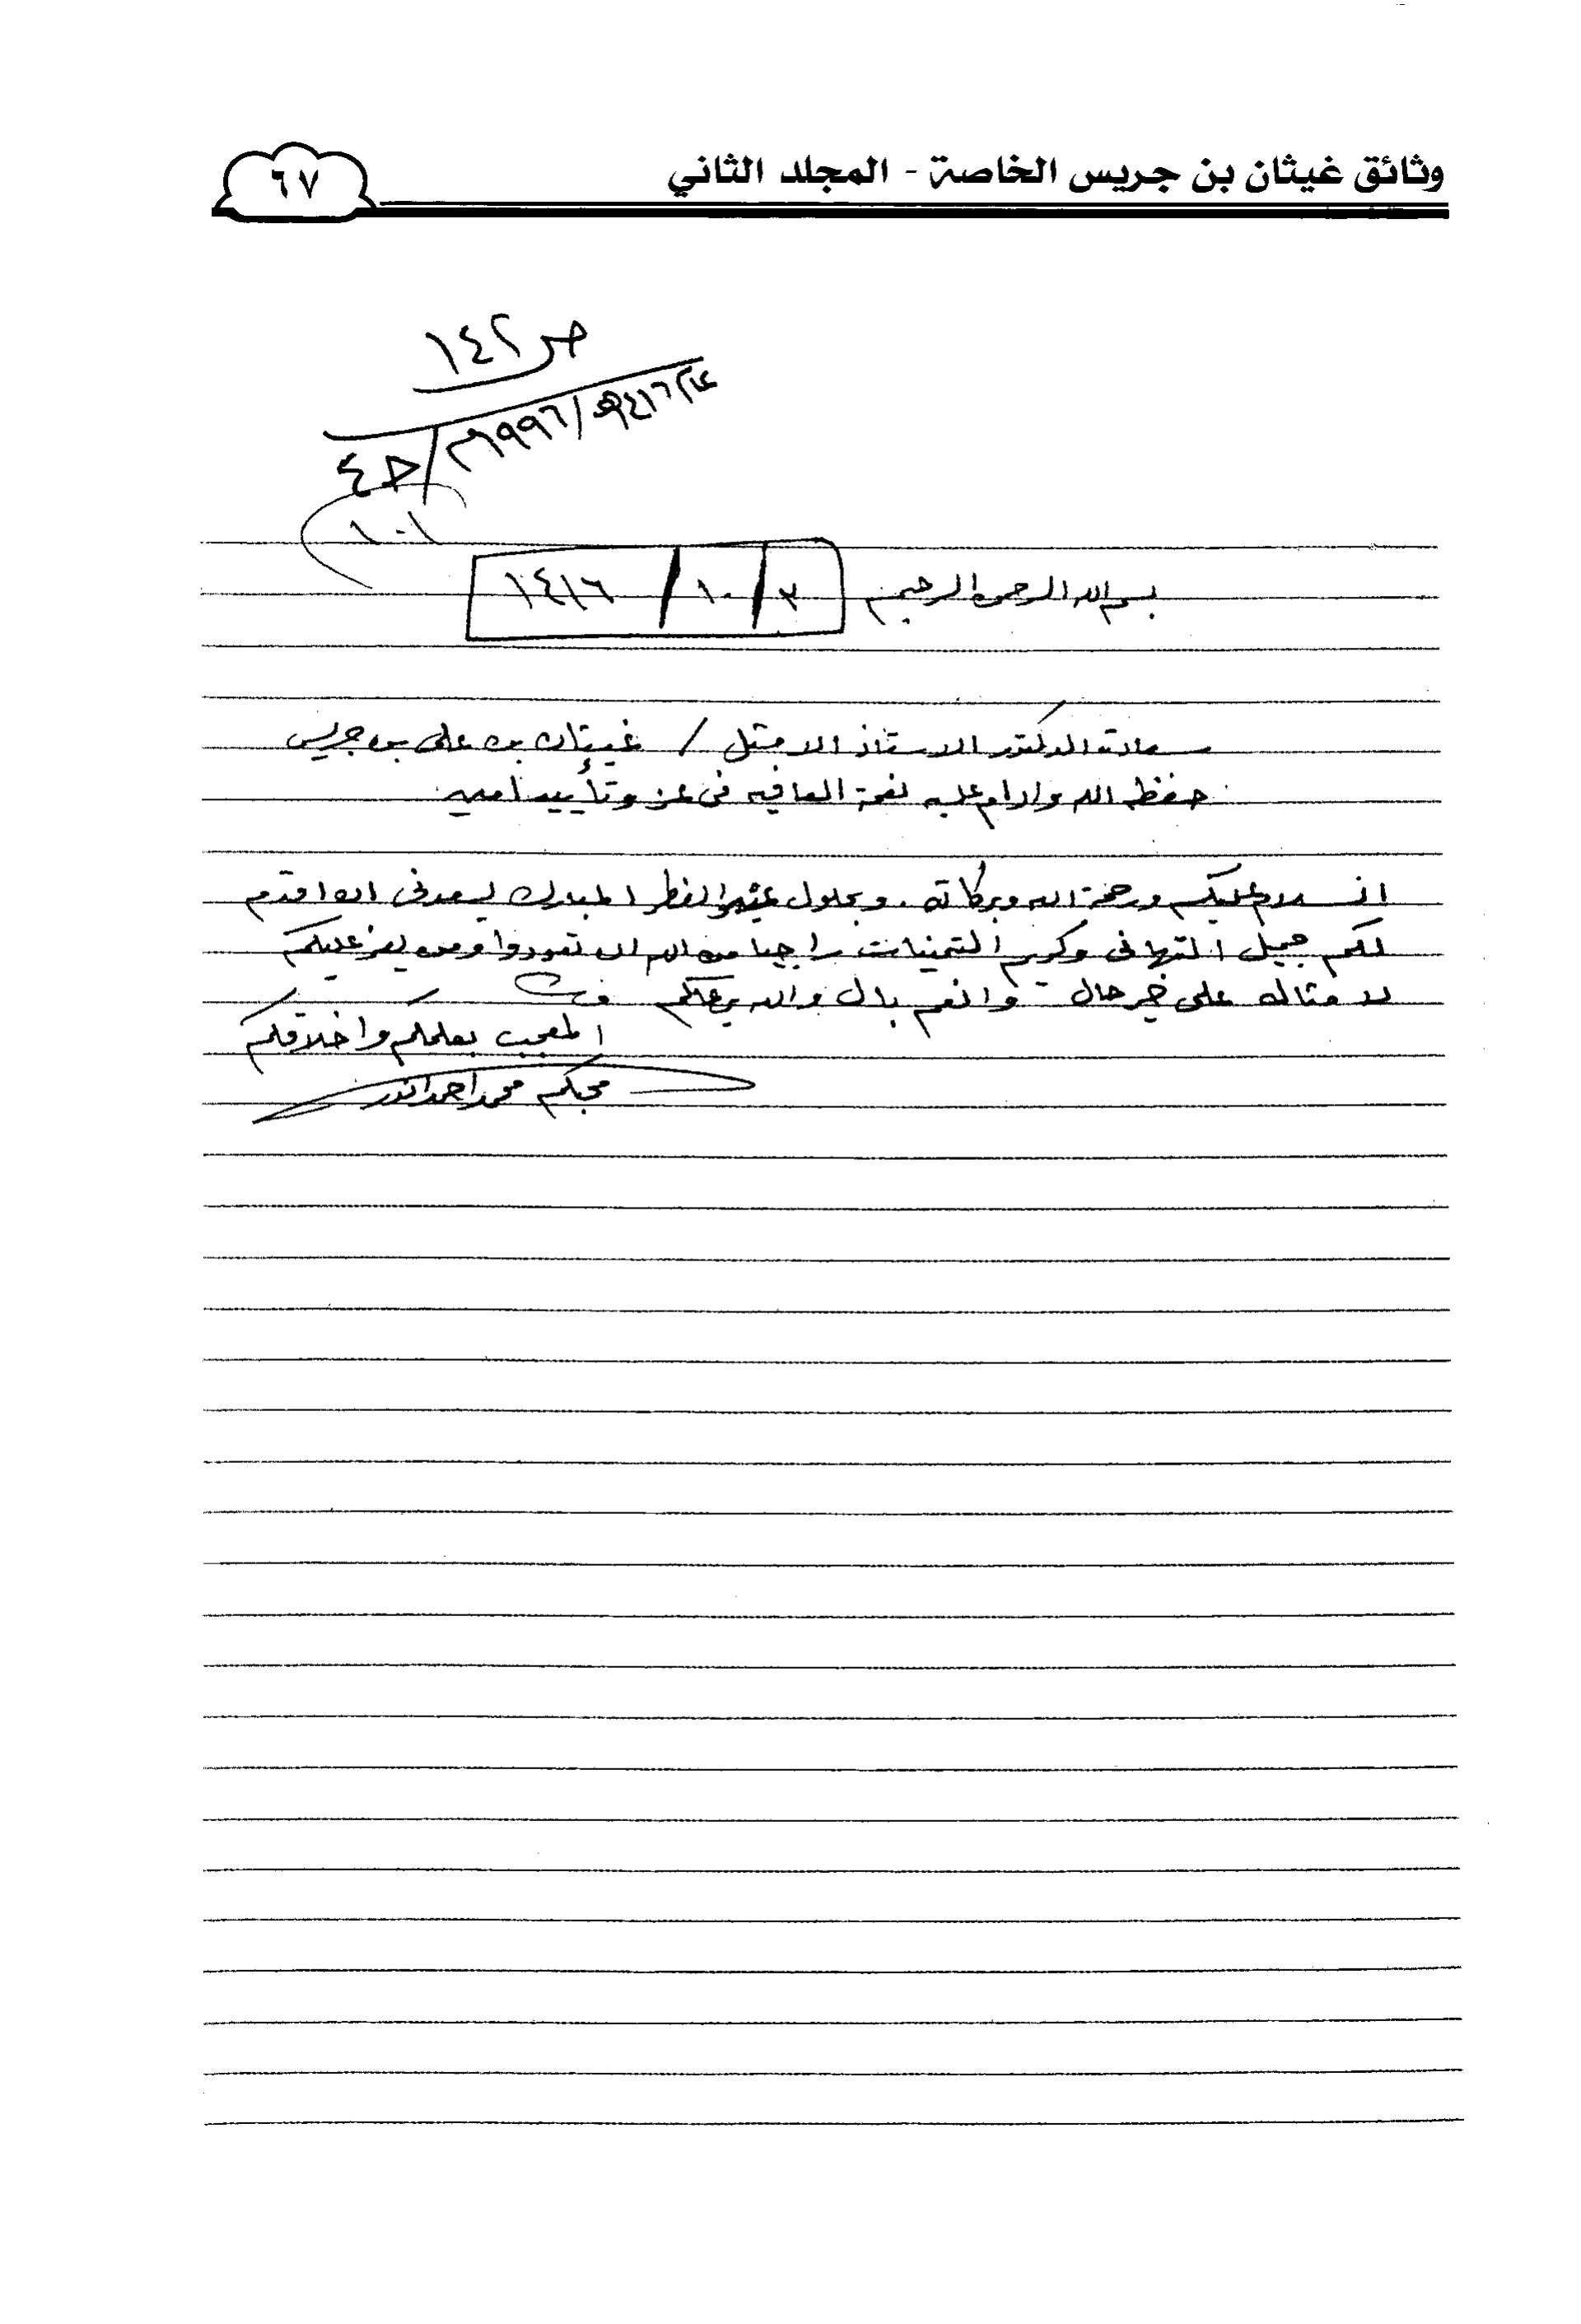 وثائق غيثان بن جريس الخاصة - المجلد الثاني
٦٧
ص ١٤٢
١٤١٦هـ/١٩٩٦م
١٠١
بسم الله الرحمن الرحيم ٣/١٠/١٤١٦
سعادة الدكتور الاستاذ الامثل / غيثان بن علي بن جريس
حفظه الله وادام عليه نعمة العافيه في عز وتأييد امين
السلام عليكم ورحمة الله وبركاته. وبحلول عيد الفطر المبارك يسعدني ان اقدم
لكم جميل التهاني وكريم التمنيات راجيا من الله ان تعودوا ومن يعز عليكم
لامثاله على خير حال وانعم بال والله يرعاكم
المعجب بعلمكم واخلاقكم
محبكم محمد احمد انور